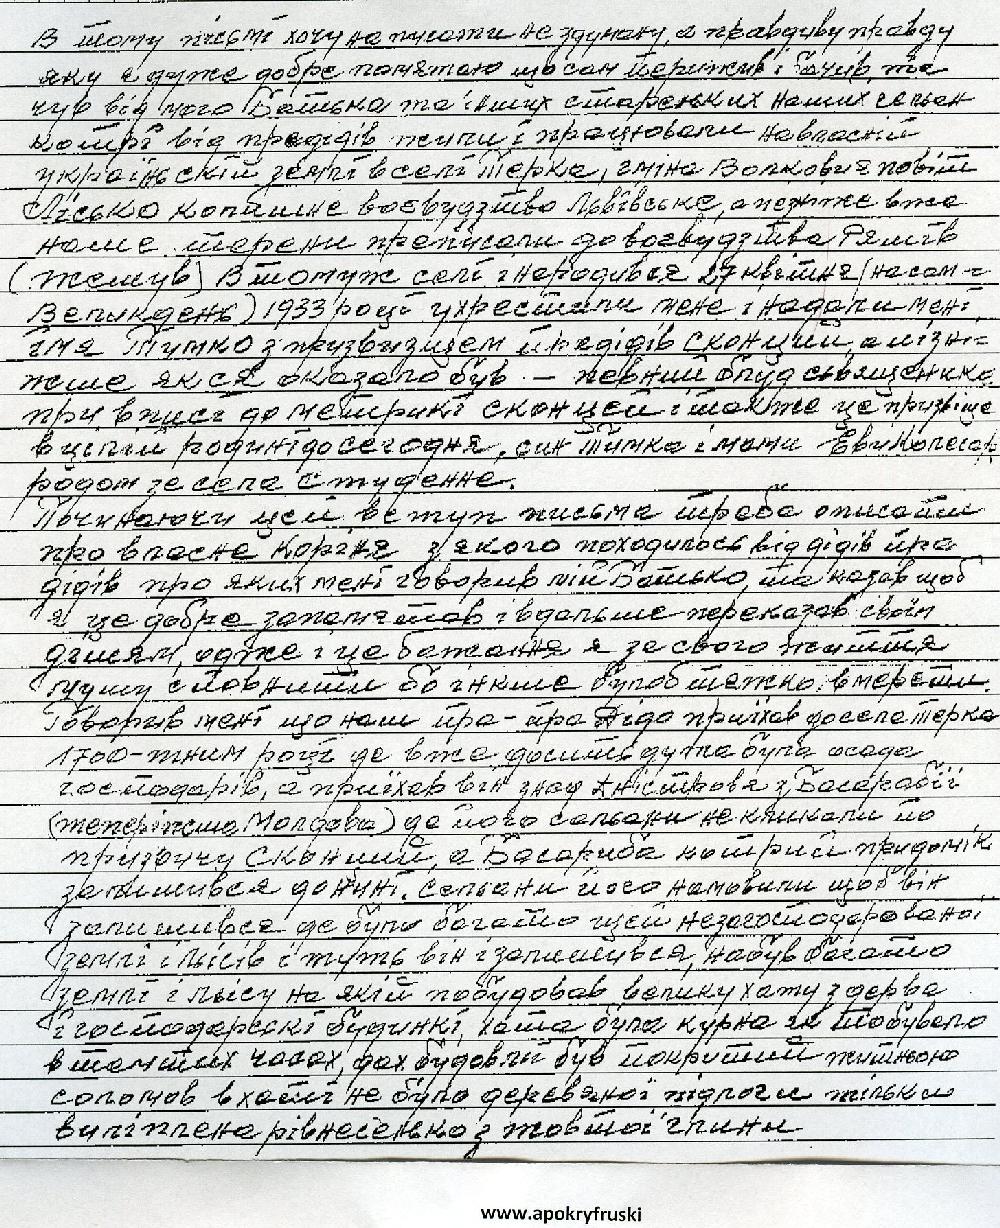 В тому письмі хочу написати не здуману, а правдиву правду
яку я дуже добре памятаю що сам пережив і бачив, та
чув від мого Батька та інших стареньких наших сельан
котрі від прадідів жили і працювали на власній
українській землі в селі Терка, гміна Волковия повіт
Лісько колишнє воєвудзтво Львівське, а пізніже вже
наше терени преписали до воєвудзтва Ряшів
(Жешув) В томуж селі і народився 27 квітня (на сам-
Великдень) 1933 році у хрестили мене і надали мені
імя Тимко з призвищем прадідів Сконций, а пізні-
жше як ся оказало був – певний блуд священика
при вписі до метрикі Сконцей і так же це призвіще
в цілій родині до сегодня, син Тимка і мами Еви Колесар
родом зе села Студенне.
Починаючи цей вступ письма треба описати
про власне коріня з якого походилось від дідів пра
дідів про яких мені говорив мій Батько, та казав щоб
я це добре запамятав і вдальше переказав своїм
дітям, одже і це бажання я за свого життя
мушу сповнити бо інкше булоб тяжко вмерети.
Говорив мені що наш пра-пра Дідо приїхав до села Терка
1700-тним році де вже досить дужа була осада
господарів, а приїхав він знад Дністровя з Басарабії
(теперіжша Молдова) де його сельани не кликали по
призвичу Сконций, а Басариба котрий придомік
залишився до нині. Сельани його намовили щоб він
залишився де було багато щей незагосподарованої
землі і лісів і туть він і залишився, набув багато
землі і лісу на якій побудовав велику хату з дерва
і господарскі будинкі, хата була курна як то бувало
в тамтих часах, дах будовлі був покритий житньою
соломов в хаті не було деревяної підлоги тільки
виліплена рівнесенько з жовтої глини
www.apokryfruski